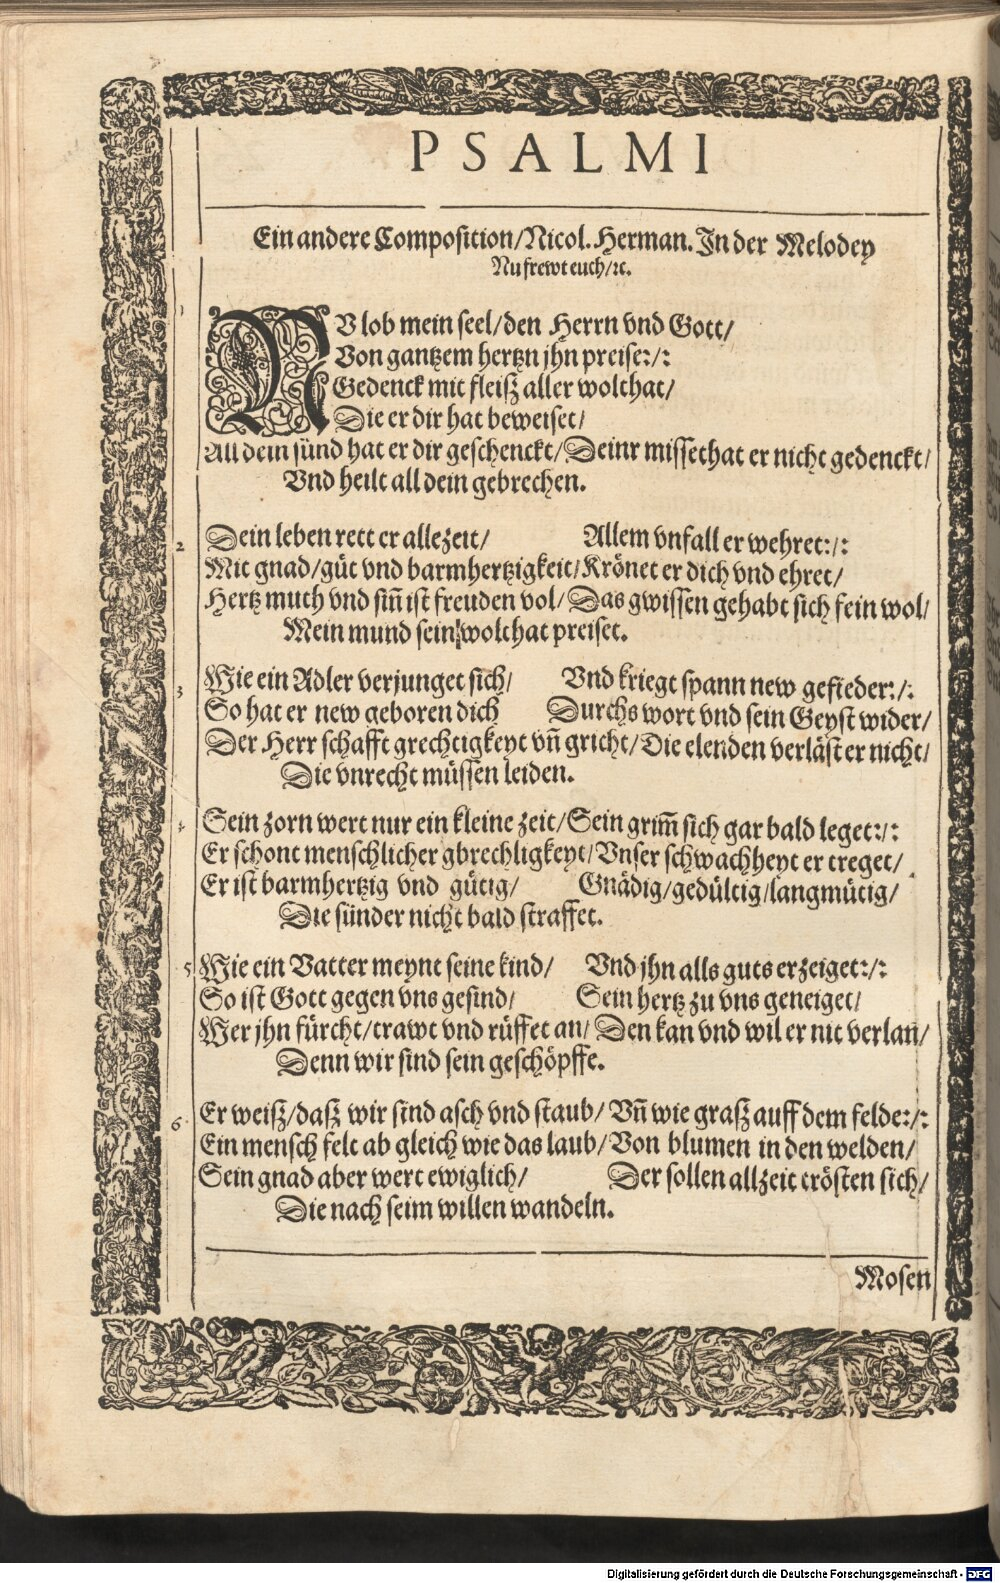 PSALMI
Ein andere Composition/Nicol. Herman. In der Melodey
Nu frewt euch/ꝛc.
1
NV lob mein seel/den Herrn vnd Gott/
Von gantzem hertzn jhn preise:/:
Gedenck mit fleisz aller wolthat/
Die er dir hat beweiset/
All dein sünd hat er dir geschenckt/Deinr missethat er nicht gedenckt/
Vnd heilt all dein gebrechen.
2 Dein leben rett er allezeit/ Allem vnfall er wehret:/:
Mit gnad/güt vnd barmhertzigkeit/Krönet er dich vnd ehret/
Hertz muth vnd siñ ist freuden vol/Das gwissen gehabt sich fein wol/
Mein mund sein wolthat preiset.
3 Wie ein Adler verjunget sich/ Vnd kriegt spann new gefieder:/:
So hat er new geboren dich Durchs wort vnd sein Geyst wider/
Der Herr schafft grechtigkeyt vñ gricht/Die elenden verläst er nicht/
Die vnrecht müssen leiden.
4 Sein zorn wert nur ein kleine zeit/Sein grim̃ sich gar bald leget:/:
Er schont menschlicher gbrechligkeyt/Vnser schwachheyt er treget/
Er ist barmhertzig vnd gütig/ Gnädig/gedültig/langmütig/
Die sünder nicht bald straffet.
5 Wie ein Vatter meynt seine kind/ Vnd jhn alls guts erzeiget:/:
So ist Gott gegen vns gesind/ Sein hertz zu vns geneiget/
Wer jhn fürcht/trawt vnd rüffet an/Den kan vnd wil er nit verlan/
Denn wir sind sein geschöpffe.
6 Er weisz/dasz wir sind asch vnd staub/Vñ wie grasz auff dem felde:/:
Ein mensch felt ab gleich wie das laub/Von blumen in den welden/
Sein gnad aber wert ewiglich/ Der sollen allzeit trösten sich/
Die nach seim willen wandeln.
Mosen
Digitalisierung gefördert durch die Deutsche Forschungsgemeinschaft - DFG